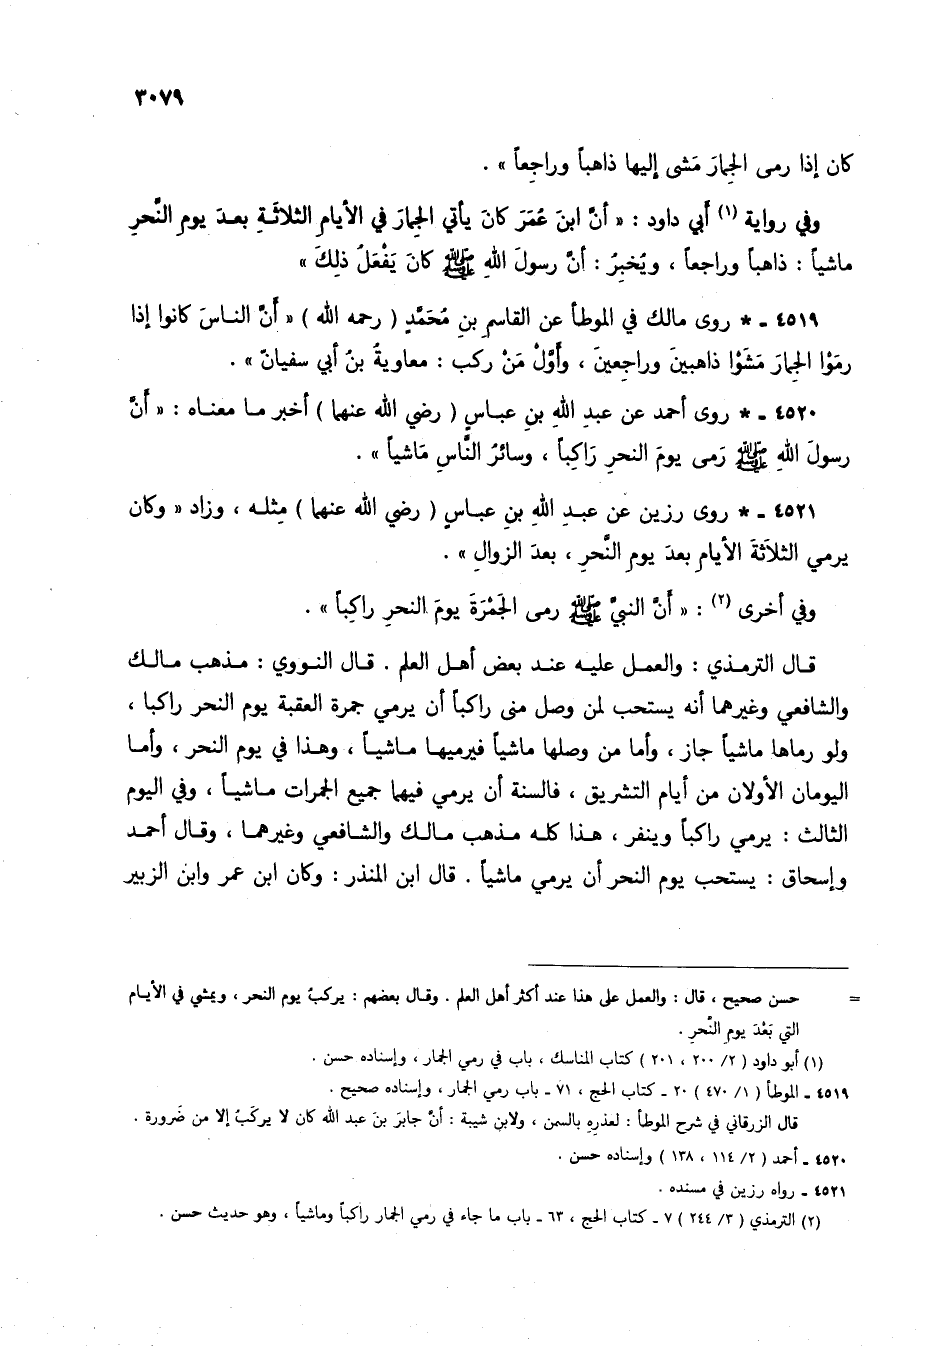 ٣٠٧٩
كان إذا رمى الجمارَ مَشى إليها ذاهباً وراجِعاً » .
وفي رواية (١) أبي داود : « أنَّ ابنَ عُمَرَ كانَ يأتي الجِمارَ في الأيامِ الثلاثَـةِ بعـدَ يومِ النَّحرِ
ماشياً : ذاهباً وراجعاً ، ويُخبِرُ : أنَّ رسولَ اللهِ ﷺ كانَ يَفْعَلُ ذلِكَ »
٤٥١٩ ـ * روى مالك في الموطأ عن القاسمِ بنِ مُحَمَّدٍ ( رحمه الله ) « أَنَّ النـاسَ كانوا إذا
رمَوْا الجِمارَ مَشَوْا ذاهبينَ وراجِعينَ ، وأَوَّلُ مَنْ ركب : معاويةُ بنُ أبي سفيانَ » .
٤٥٢٠ ـ * روى أحمد عن عبدِ اللهِ بنِ عبـاسٍ ( رضي الله عنهما ) أخبر مـا معنـاه : « أَنَّ
رسولَ اللهِ ﷺ رَمى يومَ النحرِ رَاكِباً ، وسائرُ النَّاسِ مَاشياً » .
٤٥٢١ ـ * روى رزين عن عبـدِ اللهِ بنِ عبـاسٍ ( رضي الله عنهما ) مِثلـه ، وزاد « وكان
يرمي الثلاَثةَ الأيامِ بعدَ يومِ النَّحرِ ، بعدَ الزوالِ » .
وفي أخرى (٢) : « أنَّ النبيَّ ﷺ رمى الجَمْرَةَ يومَ النحرِ راكِباً » .
قـال الترمـذي : والعمـل عليـه عنـد بعض أهـل العلم . قـال النـووي : مـذهب مـالـك
والشافعي وغيرهما أنه يستحب لمن وصل منى راكباً أن يرمي جمرة العقبة يوم النحر راكبا ،
ولو رماها ماشياً جاز ، وأما من وصلها ماشياً فيرميهـا مـاشيـاً ، وهـذا في يوم النحر ، وأمـا
اليومان الأولان من أيام التشريق ، فالسنة أن يرمي فيها جميع الجمرات مـاشيـاً ، وفي اليوم
الثالث : يرمي راكباً وينفر ، هـذا كلـه مـذهب مـالـك والشافعي وغيرهمـا ، وقـال أحمـد
وإسحاق : يستحب يوم النحر أن يرمي ماشياً . قال ابن المنذر : وكان ابن عمر وابن الزبير
= حسن صحيح ، قال : والعمل على هذا عند أكثر أهل العلم . وقـال بعضهم : يركبُ يوم النحر ، ويمشي في الأيـام
التي بَعْدَ يومِ النَّحرِ .
(١) أبو داود ( ٢/ ٢٠٠ ، ٢٠١ ) كتاب المناسك ، باب في رمي الجمار ، وإسناده حسن .
٤٥١٩ ـ الموطأ ( ١/ ٤٧٠ ) ٢٠ ـ كتاب الحج ، ٧١ ـ باب رمي الجمار ، وإسناده صحيح .
قال الزرقاني في شرح الموطأ : لعذرِهِ بالسمن ، ولابن شيبة : أنَّ جابرَ بنَ عبد الله كان لا يركَبُ إلا من ضَرورة .
٤٥٢٠ ـ أحمد ( ٢/ ١١٤ ، ١٣٨ ) وإسناده حسن .
٤٥٢١ ـ رواه رزين في مسنده .
(٢) الترمذي ( ٣/ ٢٤٤ ) ٧ ـ كتاب الحج ، ٦٣ ـ باب ما جاء في رمي الجمار راكباً وماشياً ، وهو حديث حسن .